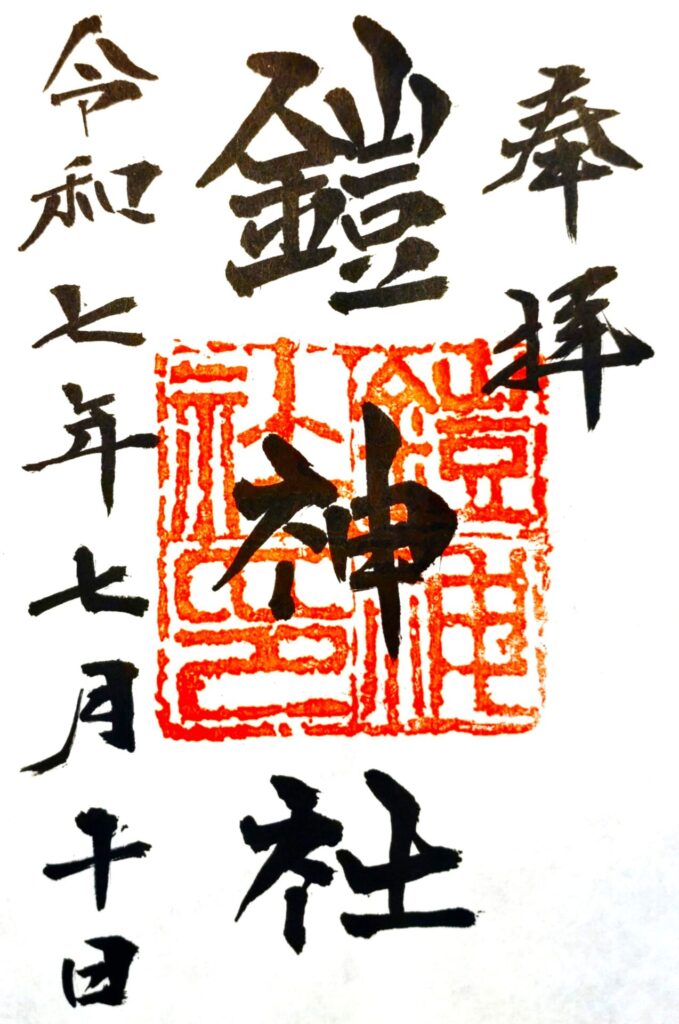 奉拝
鎧神社
鎧神社印
令和七年七月十日